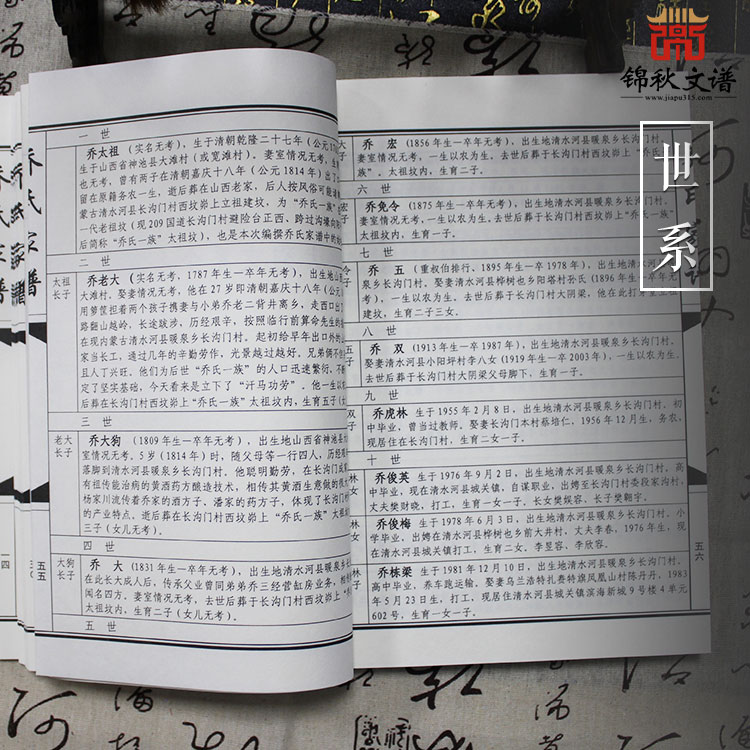 锦秋文谱
www.jiapu315.com
世系
乔氏家谱
一世
乔太祖 (实名无考),生于清朝乾隆二十七年(公元17
生于山西省神池县大滩村(或宽滩村)。妻室情况无考,
也无考,曾有两子在清朝嘉庆十八年(公元1814年)出了
留在原籍务农一生,逝后葬在山西老家,后人按风俗可能请
蒙古清水河县长沟门村西坟峁上立祖建坟,为“乔氏一族”
一代老祖坟(现209国道长沟门村避险台正西、跨过沟壕向
后简称“乔氏一族”太祖坟),也是本次编撰乔氏家谱中的
二世
太祖
长子
乔老大 (实名无考,1787年生—卒年无考),出生地山
大滩村。娶妻情况无考,他在27岁即清朝嘉庆十八年(公元
用箩筐担着两个孩子携妻与小弟乔老二背井离乡,走西口出了
路翻山越岭,长途跋涉,历经艰辛,按照临行前算命先生的
在现内蒙古清水河县长沟门村。起初给早年出口外的
家当长工,通过几年的辛勤劳作,光景越过越好,兄弟俩不
且人丁兴旺。他们为后世“乔氏一族”的人口迅速繁衍,不
定了坚实基础,今天看来是立下了“汗马功劳”。他一生以
后葬在长沟门村西坟峁上“乔氏一族”太祖坟内,生育五子
三世
老大
长子
乔大狗 (1809年生—卒年无考),出生地山西省神池县
室情况无考。5岁(1814年)时,随父母等一行四人,历经
落脚到清水河县暖泉乡长沟门村。他聪明勤劳,在长沟门成
有祖传能治病的黄酒药方酿造技术,相传其黄酒生意做的很
杨家川流传着乔家的酒方子、潘家的药方子,体现了长沟门村
的产业特点,逝后葬在长沟门村西坟峁上“乔氏一族”太祖坟
三子(女儿无考)。
四世
大狗
长子
乔大 (1831年生—卒年无考),出生地清水河县暖泉乡长
在此长大成人后,传承父业曾同弟弟乔三经营缸房业务,
闻名四方。妻室情况无考,去世后葬于长沟门村西坟峁上“乔
太祖坟内,生育二子(女儿无考)。
五世
五五
大子
乔宏 (1856年生—卒年无考),出生地清水河县暖泉乡长沟门村,
妻室情况无考,一生以农为生。去世后葬于长沟门村西坟峁上“乔氏一
族”。太祖坟内,生育二子。
六世
宏子
乔免令 (1875年生—卒年无考),出生地清水河县暖泉乡长沟门村。
妻室情况无考,一生以农为生。去世后葬于长沟门村西坟峁上“乔氏一
族”太祖坟内,生育一子。
七世
令子
乔五 (重叔伯排行、1895年生—卒年1978年),出生地清水河县暖
泉乡长沟门村。娶妻清水河县桦树也乡阳塔村孙氏(1896年生—卒年无
考),一生以农为生。去世后葬于长沟门村大阴梁,他在此打
生育二子三女。
八世
五子
乔双 (1913年生—卒年1987年),出生地清水河县暖泉乡长沟门村。
娶妻清水河县小阳坪村李八女(1919年生—卒年2003年),一生以农为生。
去世后葬于长沟门村大阴梁父母脚下,生育一子。
九世
双子
乔虎林 生于1955年2月8日,出生地清水河县暖泉乡长沟门村。高中
毕业,曾当过教师。娶妻长沟门本村蔡培仁,1956年12月生,务农,
现居住在长沟门村。生育二女一子。
十世
林女
乔俊英 生于1976年9月2日,出生地清水河县暖泉乡长沟门村。高
中毕业,现在清水河县城关镇,自谋职业,出嫁至长沟门村委段家沟村,
丈夫樊财晓,打工,生育一女一子。长女樊娱容、长子樊翱宇。
林女
乔俊梅 生于1978年6月3日,出生地清水河县暖泉乡长沟门村。小
学毕业,出娉在清水河县桦树也乡前大井村,丈夫李春,1976年生,现
在清水河县城关镇打工,生育二女、李昱容、李欣容。
林子
乔栋梁 生于1981年12月10日,出生地清水河县暖泉乡长沟门村。
高中毕业,养车跑运输。娶妻乌兰浩特扎赉特旗凤凰山村陈丹丹,1983
年5月23日生,打工,现居住清水河县城关镇滨海新城9号楼4单元
602号,生育一女一子。
五六